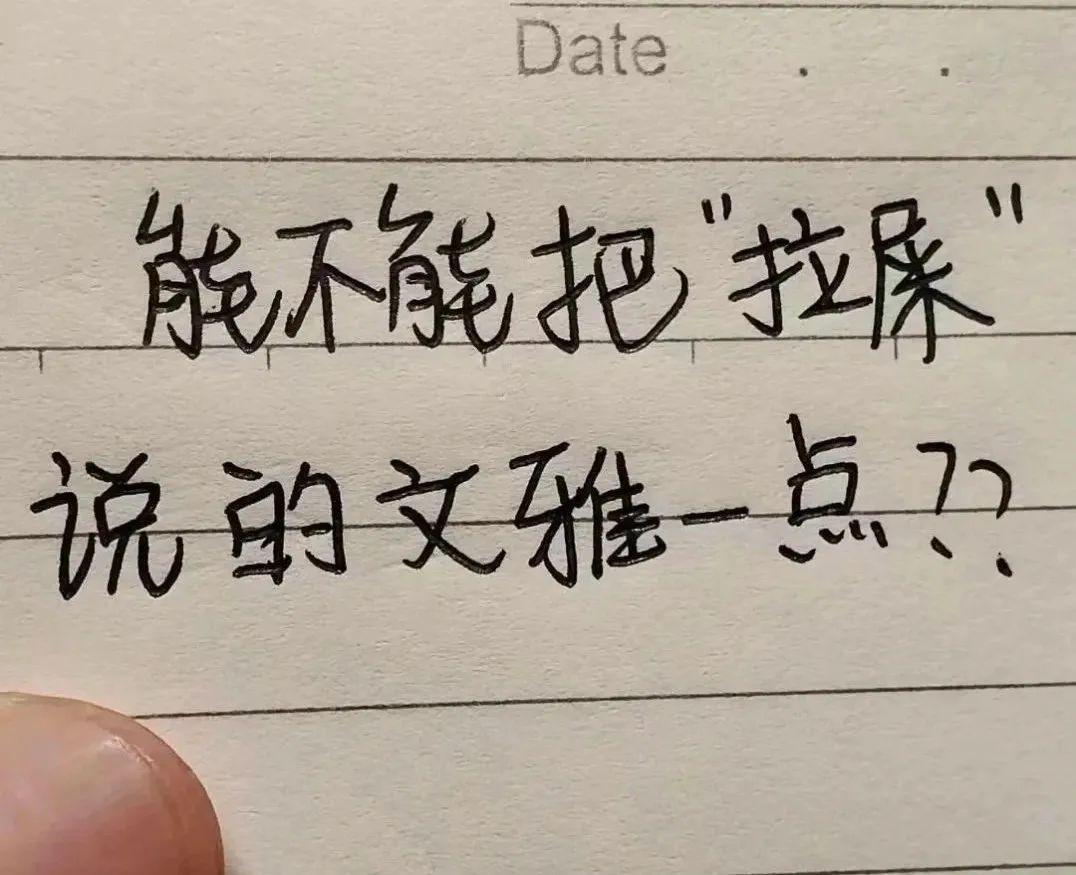 Date . .
能不能把"拉屎"
说的文雅一点??